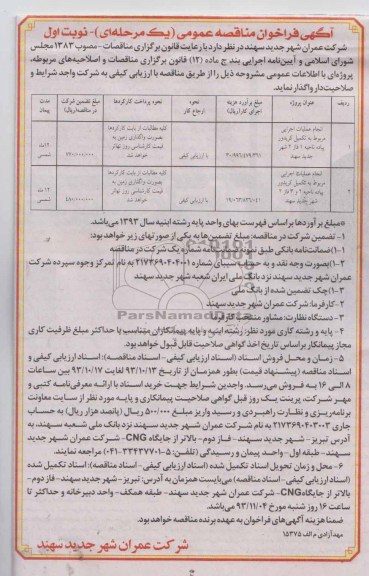 آگهی فراخوان مناقصه عمومی (یک مرحله‌ای)- نوبت اول
شرکت عمران شهر جدید سهند در نظر دارد با رعایت قانون برگزاری مناقصات - مصوب ۱۳۸۳ مجلس
شورای اسلامی و آیین‌نامه اجرایی بند ج ماده (۱۲) قانون برگزاری مناقصات و اصلاحیه‌های مربوطه،
پروژه‌ای با اطلاعات عمومی مشروحه ذیل را از طریق مناقصه با ارزیابی کیفی به شرکت واجد شرایط و
صلاحیت‌دار واگذار نماید.
ردیف عنوان پروژه مبلغ برآورد هزینه اجرای کار(ریال) نحوه ارجاع کار نحوه پرداخت کارکردها مبلغ تضمین شرکت در مناقصه(ریال) مدت پیمان
۱ انجام عملیات اجرایی مربوط به تکمیل کریدور پیاده ناحیه ۱ فاز ۲ شهر جدید سهند با ارزیابی کیفی کلیه مطالبات از بابت کارکردها بصورت واگذاری زمین به قیمت کارشناسی روز تهاتر خواهد شد ۱۲ ماه شمسی
۲ انجام عملیات اجرایی مربوط به تکمیل کریدور پیاده ناحیه ۲ و ۳ فاز ۲ شهر جدید سهند با ارزیابی کیفی کلیه مطالبات از بابت کارکردها بصورت واگذاری زمین به قیمت کارشناسی روز تهاتر خواهد شد ۱۲ ماه شمسی
*مبلغ برآوردها براساس فهرست بهای واحد پایه رشته ابنیه سال ۱۳۹۳ می‌باشد.
۱- تضمین شرکت در مناقصه: مبلغ تضمین‌ها به یکی از صورتهای زیر خواهد بود:
۱-۱) ضمانت‌نامه بانکی طبق نمونه ضمانت‌نامه شماره یک شرکت در مناقصه
۱-۲) بصورت وجه نقد و به حساب سیبای شماره ۲۱۷۳۶۹۰۴۰۴۰۰۱ به نام تمرکز وجوه سپرده شرکت
عمران شهر جدید سهند نزد بانک ملی ایران شعبه شهر جدید سهند
۱-۳) چک تضمین شده از بانک ملی
۲- کارفرما: شرکت عمران شهر جدید سهند
۳- دستگاه نظارت: مشاور منتخب کارفرما
۴- پایه و رشته کاری مورد نظر: رشته ابنیه و پایه پیمانکاران متناسب با حداکثر مبلغ ظرفیت کاری
مجاز پیمانکار براساس تاریخ اخذ گواهی صلاحیت قابل قبول خواهد بود.
۵- زمان و محل فروش اسناد (اسناد ارزیابی کیفی - اسناد مناقصه): اسناد ارزیابی کیفی و
اسناد مناقصه (پیشنهاد قیمت) بطور همزمان از تاریخ ۹۳/۱۰/۱۳ لغایت ۹۳/۱۰/۱۷ بین ساعات
۸ الی ۱۶ به فروش می‌رسد. واجدین شرایط جهت خرید اسناد با ارائه معرفی‌نامه کتبی و
مهر شرکت، پرینت یک روز قبل گواهی صلاحیت پیمانکاری و پایه مورد نظر از سایت معاونت
برنامه‌ریزی و نظارت راهبردی و رسید واریز مبلغ ۵۰۰/۰۰۰ ریال (پانصد هزار ریال) به حساب
جاری ۲۱۷۳۶۹۰۴۰۲۰۰۳ به نام شرکت عمران شهر جدید سهند نزد بانک ملی شعبه سهند، به
آدرس تبریز - شهر جدید سهند- فاز دوم - بالاتر از جایگاه CNG - شرکت عمران شهر جدید
سهند - طبقه اول - واحد پیمان و رسیدگی (تلفن: ۵-۳۳۴۳۷۷۰۱-۰۴۱) مراجعه نمایند.
۶- محل و زمان تحویل اسناد تکمیل شده (اسناد ارزیابی کیفی- اسناد مناقصه): اسناد تکمیل شده
(اسناد ارزیابی کیفی- اسناد مناقصه) می‌بایست همزمان به آدرس: تبریز - شهر جدید سهند - فاز دوم -
بالاتر از جایگاه CNG - شرکت عمران شهر جدید سهند - طبقه همکف - واحد دبیرخانه و حداکثر تا
ساعت ۱۶ روز شنبه مورخ ۹۳/۱۱/۰۴ می‌باشد.
ضمنا هزینه آگهی‌های فراخوان به عهده برنده مناقصه خواهد بود.
مهد آزادی م الف ۱۵۳۷۵
شرکت عمران شهر جدید سهند